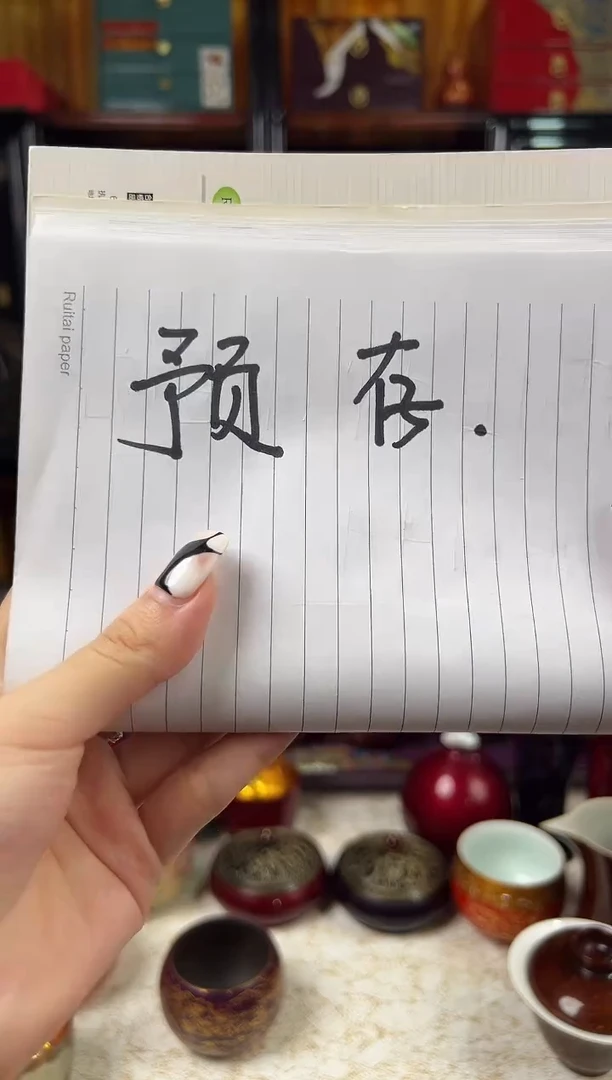 预存.
Ruitai paper